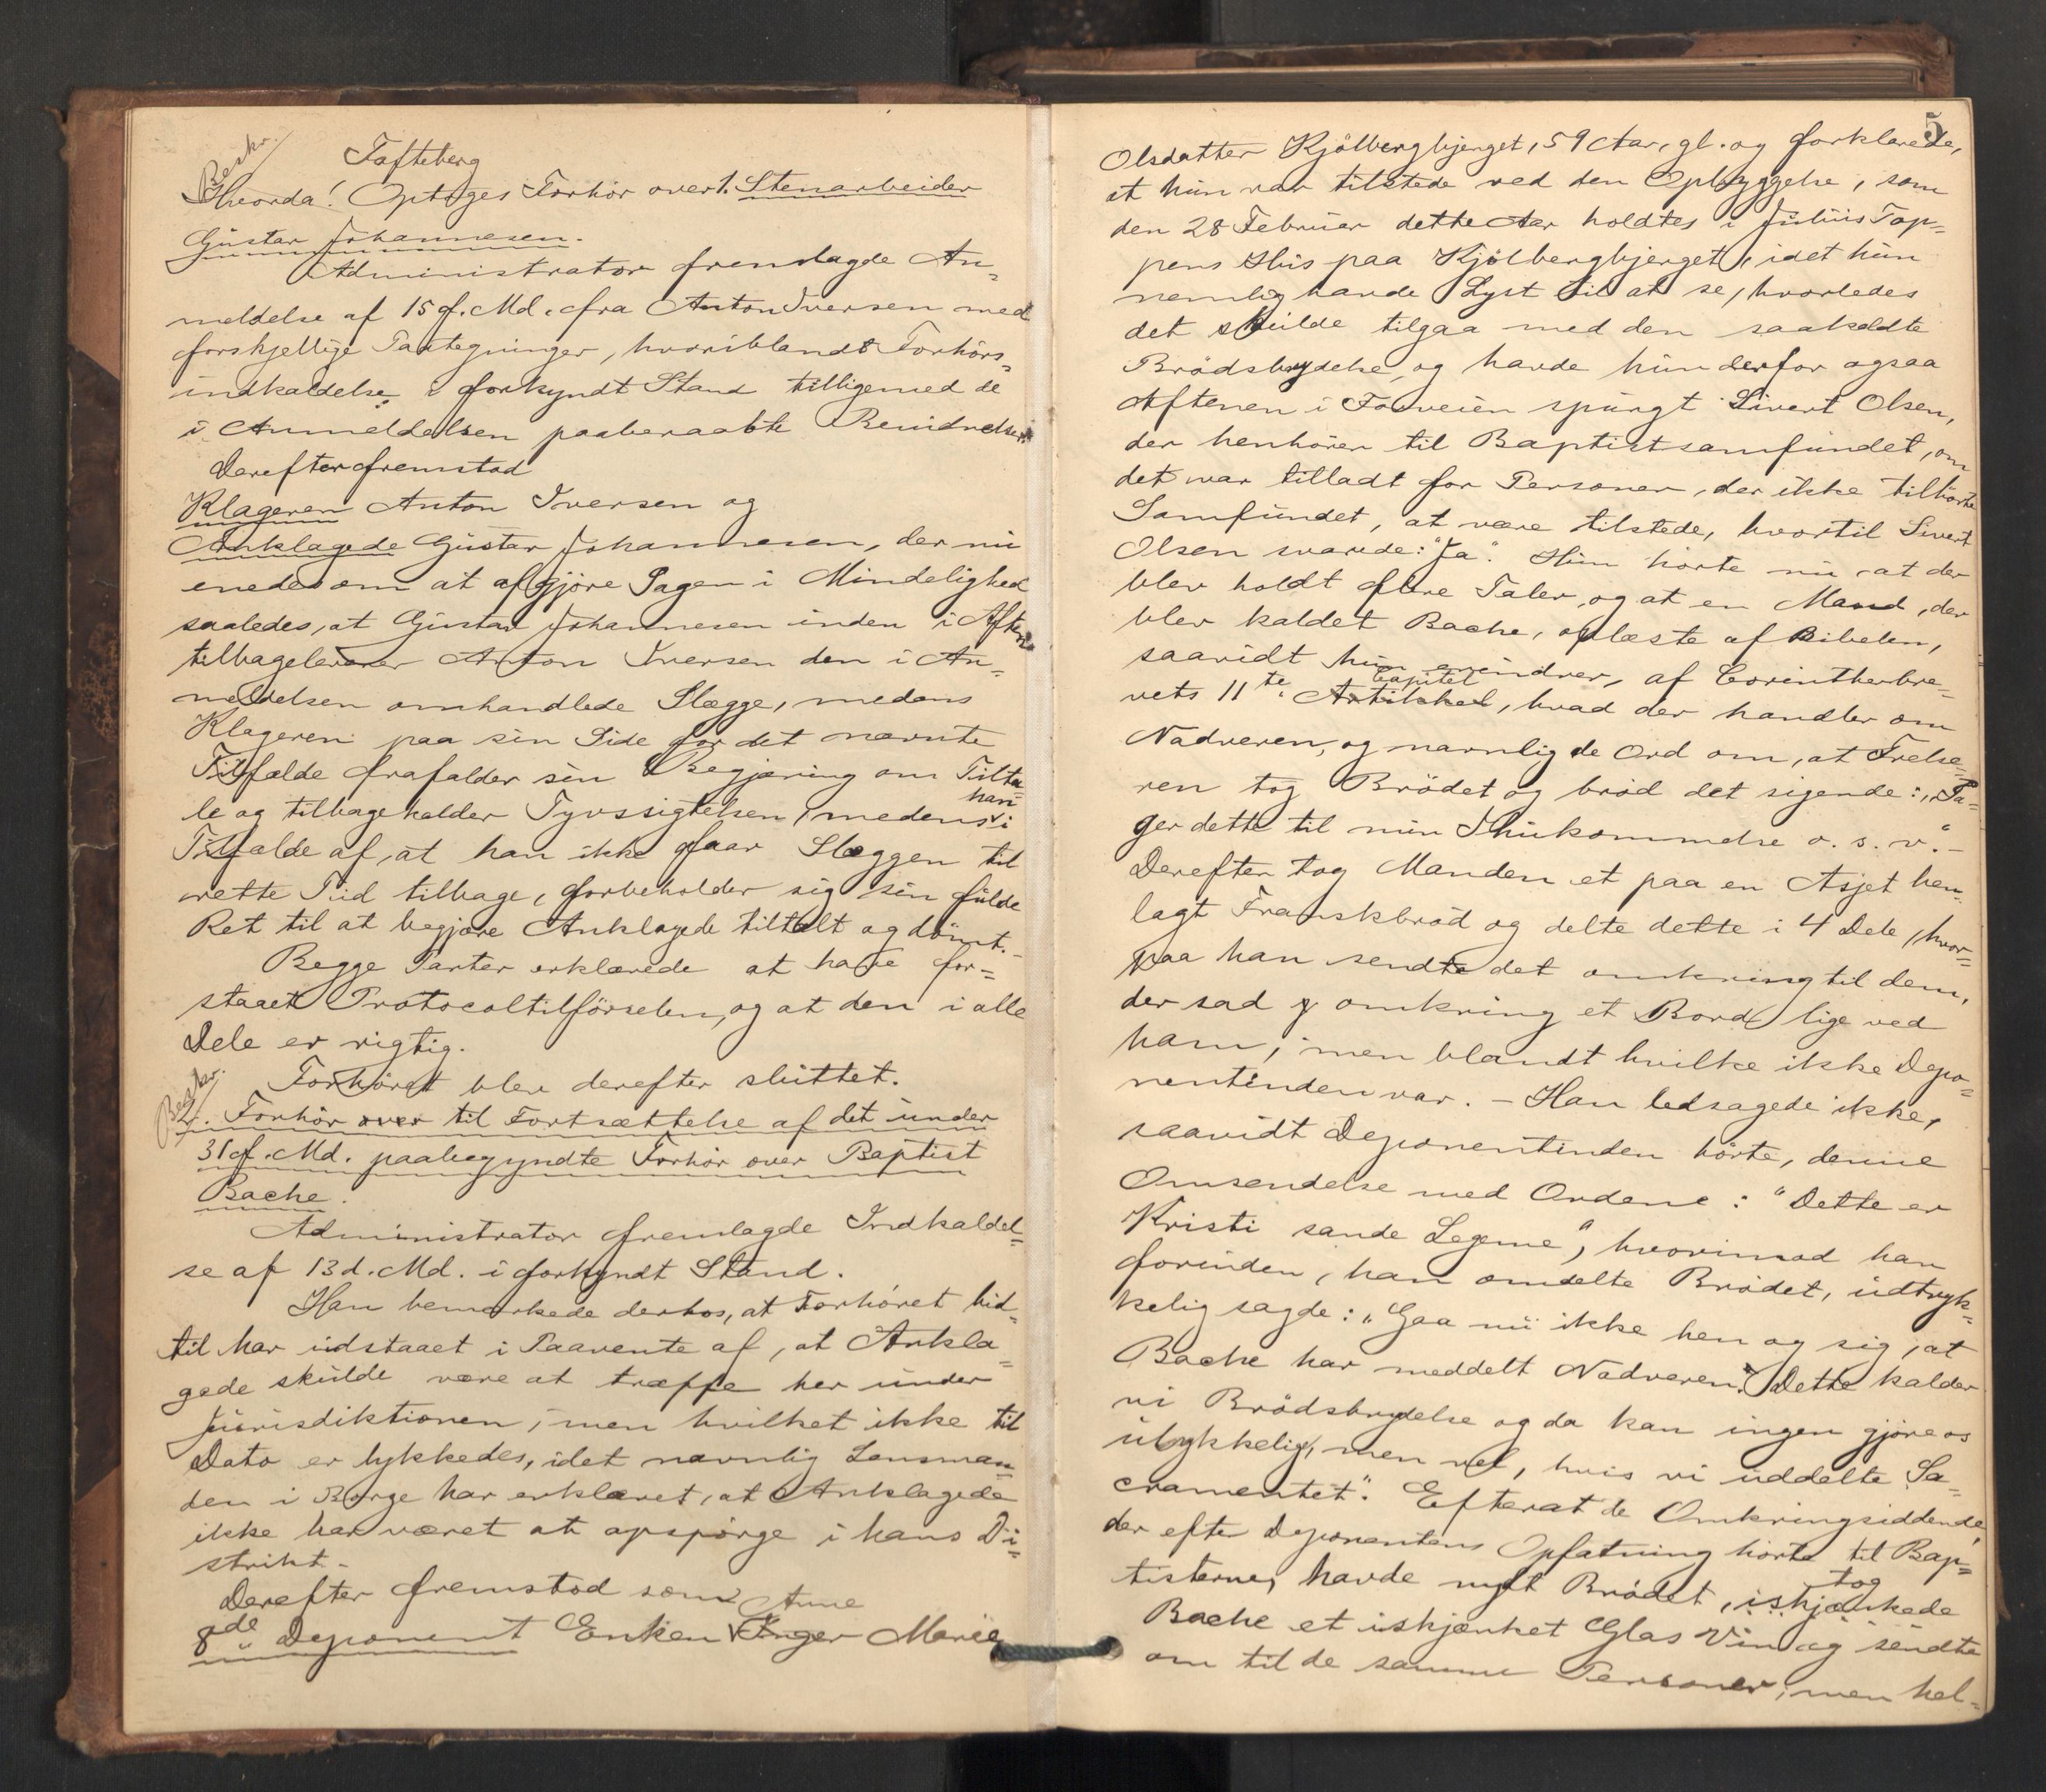 Beskr.
Tafteberg
Hvorda! Optoges Forhör over 1. Stenarbeider
Gustav Johannesen.
Administrator fremlagde An-
meldelse af 15 f. Md. fra Anton Iversen med
forskjellige Paategninger, hvoriblandt Forhörs-
indkaldelse i forkyndt Stand tilligemed de
i Anmeldelsen paaberaabte Bevidnelser.
Derefter fremstod
Klageren Anton Iversen og
Anklagede Gustav Johannesen, der nu
enedes om at afgjöre Sagen i Mindelighed
saaledes, at Gustav Johannesen inden i Aften
tilbageleverer Anton Iversen den i An-
meldelsen omhandlede Slægge, medens
Klageren paa sin Side for det nævnte
Tilfælde frafalder sin Begjæring om Tilta-
le og tilbagekalder Tyvssigtelsen, medens han i
Tilfælde af, at han ikke faar Slæggen til
rette Tid tilbage, forbeholder sig sin fulde
Ret til at begjære Anklagede tiltalt og dömt.-
Begge Parter erklærede at have for-
staaet Protocoltilförselen, og at den i alle
Dele er rigtig.
Forhöret blev derefter sluttet.
Beskr.
2. Forhör over til Fortsættelse af det under
31 f. Md. paabegyndte Forhör over Baptist
Bache.
Administrator fremlagde Indkaldel-
se af 13 d. Md. i forkyndt Stand.
Han bemærkede derhos, at Forhöret hid-
til har udstaaet i Paavente af, at Ankla-
gede skulde være at træffe her under
Jurisdiktionen, men hvilket ikke til
Dato er lykkedes, idet navnlig Lensman-
den i Borge har erklæret, at Anklagede
ikke har været at opspörge i hans Di-
strikt.-
Derefter fremstod som
8de Deponent Enken Anne Inger Marie
5
Olsdatter Kjölbergbjerget, 59 Aar, gl. og forklarede,
at hun var tilstede ved den Opbyggelse, som
den 28 Februar dette Aar holdtes i Julius Top-
pens Hus paa Kjölbergbjerget, idet hun
nemlig havde Lyst til at se, hvorledes
det skulde tilgaa med den saakaldte
Brödsbrydelse, og havde hun derfor ogsaa
Aftenen i Forveien spurgt Sivert Olsen,
der henhörer til Baptistsamfundet, om
det var tilladt for Personer, der ikke tilhörte
Samfundet, at være tilstede, hvortil Sivert
Olsen svarede: "Ja". Hun hörte nu, at der
blev holdt flere Taler, og at en Mand, der
blev kaldet Bache, oplæste af Bibelen,
saavidt hun erindrer, af Corintherbre-
vets 11te Artikkel Capitel, hvad der handler om
Nadveren, og navnlig de Ord om, at Frelse-
ren tog Brödet og bröd det sigende: "Ta-
ger dette til min Ihukommelse o. s. v."-
Derefter tog Manden et paa en Asjet hen-
lagt Franskbröd og delte dette i 4 Dele, hvor-
paa han sendte det omkring til dem,
der sad omkring et Bord lige ved
ham, men blandt hvilke ikke Depo-
nentinden var. - Han ledsagede ikke,
saavidt Deponentinden hörte, denne
Omsendelse med Ordene: "Dette er
Kristi sande Legeme", hvorimod han
forinden, han omdelte Brödet, udtryk-
kelig sagde: "Gaa nu ikke hen og sig, at
Bache har meddelt Nadveren." Dette kalder
vi Brödsbrydelse og da kan ingen gjöre os
ulykkelig, men vel, hvis vi uddelte Sa-
cramentet". Efterat de Omkringsiddende,
der efter Deponentens Opfatning hörte til Bap-
tisterne, havde nydt Brödet, iskjænkede tog
Bache et iskjænket Glas Vin og sendte
om til de samme Personer, men hel-